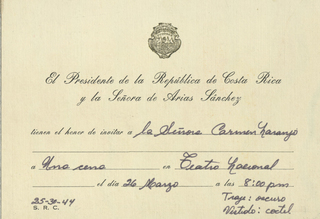 El Presidente de la República de Costa Rica
y la Señora de Arias Sánchez
tienen el honor de invitar a la Señora Carmen Naranjo
a Una cena en Teatro Nacional
el día 26 Marzo a las 8:00 pm
25-31-44
S. R. C.
Traje: oscuro
Vestido: coctel